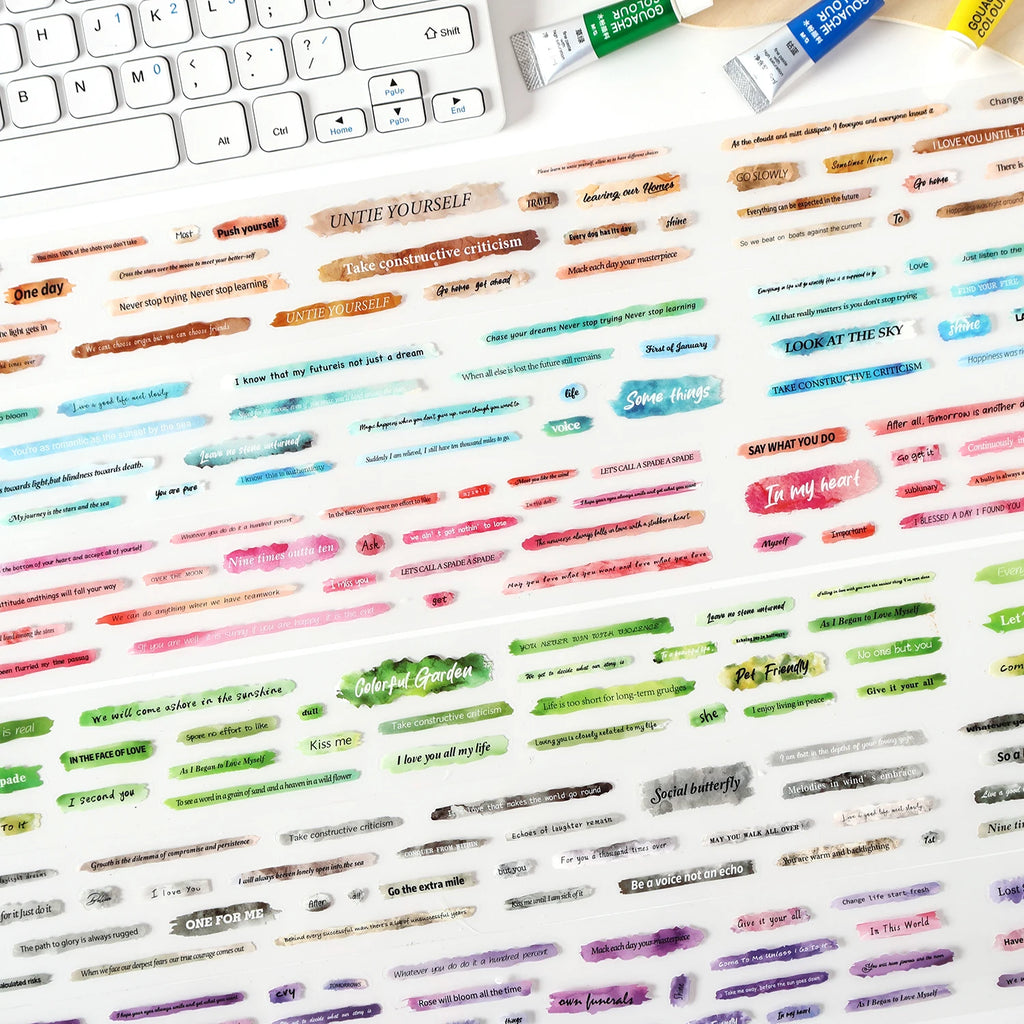 H
J 1
K 2
L
B
N
M 0
<
,
>
.
?
/
Shift
Alt
Ctrl
Home
PgUp
PgDn
End
GOUACHE COLOUR
GOUACHE COLOUR
GOUACHE COLOUR
You miss 100% of the shots you don't take
Most
Push yourself
UNTIE YOURSELF
TRAVEL
leaving our Homes
Cross the stars over the moon to meet your better-self
Take constructive criticism
Every dog has its day
shine
One day
Never stop trying Never stop learning
UNTIE YOURSELF
Go home get ahead
Mack each day your masterpiece
the light gets in
We cant choose origin but we can choose friends
As the clouds and mist dissipate I loveyou and everyone knows it
Change
GO SLOWLY
Sometimes Never
I LOVE YOU UNTIL TH
Everything can be expected in the future
Go home
There is
So we beat on boats against the current
To
Happiness was right around
Chase your dreams Never stop trying Never stop learning
I know that my futureis not just a dream
When all else is lost the future still remains
First of January
bloom
Live a good life meet slowly
life
Some things
You're as romantic as the sunset by the sea
Leave no stone unturned
Magic happens when you don't give up, even though you want to
voice
towards light,but blindness towards death.
You are pure
I know this is
Suddenly I am relieved, I still have ten thousand miles to go
My journey is the stars and the sea
Love
Just listen to the
All that really matters is you don't stop trying
FIND YOUR FIRE
LOOK AT THE SKY
shine
TAKE CONSTRUCTIVE CRITICISM
Happiness was ri
LET'S CALL A SPADE A SPADE
In the face of love spare no effort to like
myself
About you like the wind
I hope your eyes always smile and get what you want
Whatever you do do it a hundred percent
we ain't got nothin' to lose
The universe always falls in love with a stubborn heart.
the bottom of your heart and accept all of yourself
Nine times outta ten
Ask
OVER THE MOON
I miss you
LET'S CALL A SPADE A SPADE
May you love what you want and love what you love
attitude andthings will fall your way
We can do anything when we have teamwork
get
If you are well it is sunny if you are happy it is the end
been flurried my time passag
SAY WHAT YOU DO
After all, Tomorrow is another d
In my heart
Go get it
Continuously im
sublunary
A bully is always
Myself
Important
I BLESSED A DAY I FOUND YOU
YOU NEVER WIN WITH VIOLENCE
Leave no stone unturned
As I Began to Love Myself
Every
We get to decide what our story is
To a beautiful life
No one but you
Let
Colorful Garden
Pet Friendly
We will come ashore in the sunshine
dull
Life is too short for long-term grudges
Give it your all
com
is real
Spare no effort to like
Take constructive criticism
she
I enjoy living in peace
IN THE FACE OF LOVE
Kiss me
Loving you is closely related to my life
pade
As I Began to Love Myself
I love you all my life
I second you
To see a word in a grain of sand and a heaven in a wild flower
To It
Whatever yo
I am lost in the depths of your loving gaze
So a
Social butterfly
Melodies in wind's embrace
Love that makes the world go round
Live a good
Take constructive criticism
Echoes of laughter remain
Live a good life meet slowly
Growth is the dilemma of compromise and persistence
CONQUER FROM WITHIN
MAY YOU WALK ALL OVER
Nine tim
I will always beeven lonely open into the sea
but you
For you a thousand times over
Yat
I Love You
Go the extra mile
You are warm and backlighting
for it Just do it
After
all
Kiss me until I am sick of it
Be a voice not an echo
ONE FOR ME
The path to glory is always rugged
Behind every successful man there's a lot of unsuccessful years
When we face our deepest fears our true courage comes out
calculated risks
Change life start fresh
Lost
Give it your all
In This World
Mack each day your masterpiece
Have
Whatever you do do it a hundred percent
Come To Me Unless I Go To It
You will have forever and the now
cry
TOMORROWS
Take me away, before the sun goes down
We m
I hope your eyes always smile and get what you want
Rose will bloom all the time
own funerals
Shine
As I Began to Love Myself
get to decide what our story is
things
Friendly
In my heart